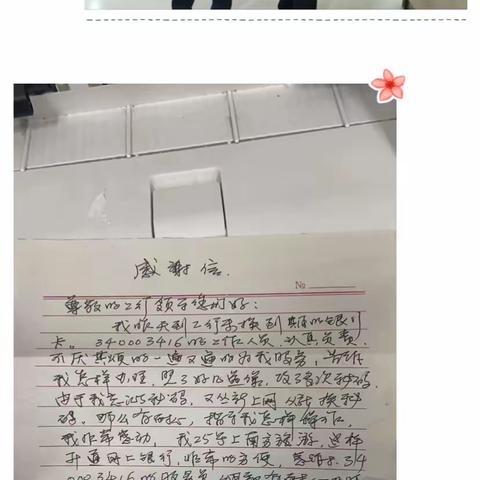 感谢信.
No
尊敬的工行领导您们好:
我昨天到工行来换到期的银行
卡。340003416的工作人员,认真负责,
不厌其烦的一遍又一遍的为我服务,告诉
我怎样办理,照了好几遍像,改了多次秘码.
由于我忘记秘码,又从新上网从新换秘
码。耐心,指导我怎样操作,
我非常感动,我25号上南方旅游,这样
开通网上银行,非常的方便,感谢34
0003416的服务员